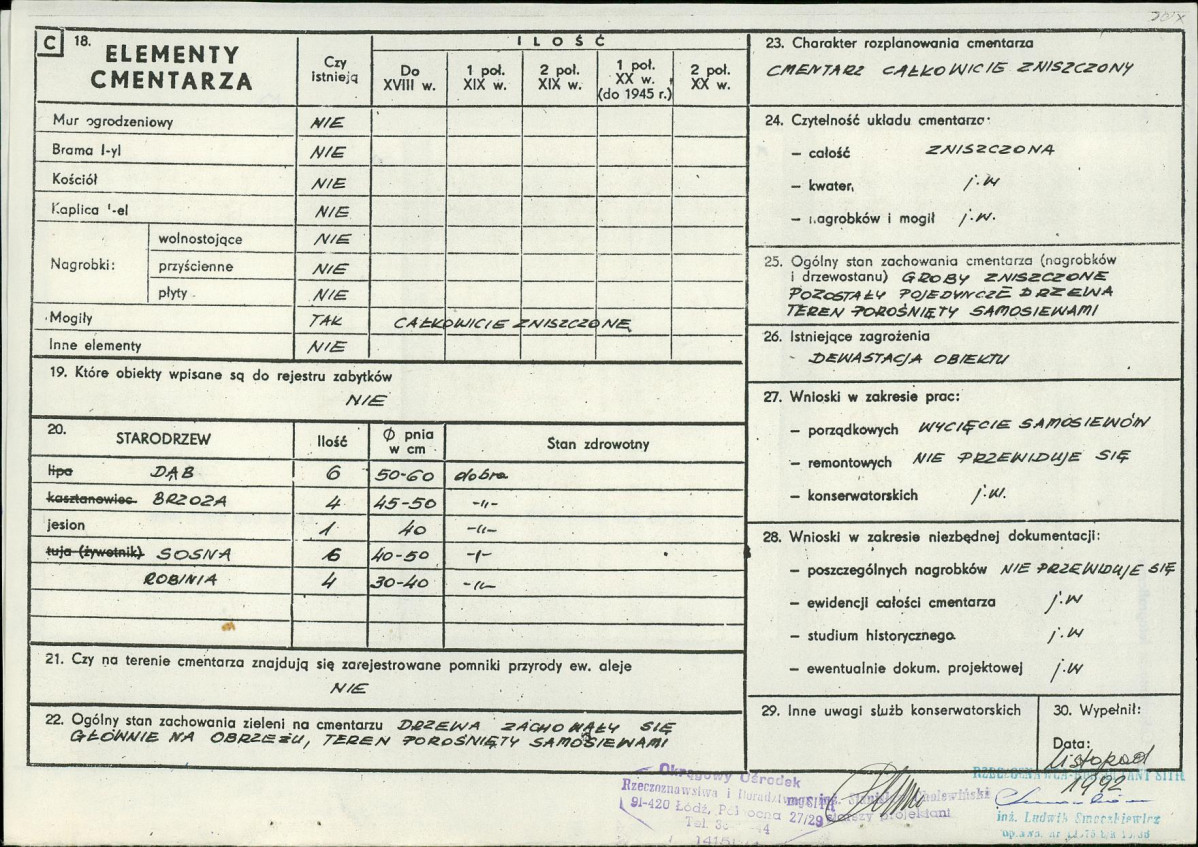 C 18. ELEMENTY CMENTARZA
Czy istnieją
ILOŚĆ
Do XVIII w.
1 poł. XIX w.
2 poł. XIX w.
1 poł. XX w. (do 1945 r.)
2 poł. XX w.
Mur ogrodzeniowy NIE
Brama I-yl NIE
Kościół NIE
Kaplica -el NIE
Nagrobki:
wolnostojące NIE
przyścienne NIE
płyty NIE
Mogiły TAK CAŁKOWICIE ZNISZCZONE
Inne elementy NIE
19. Które obiekty wpisane są do rejestru zabytków
NIE
20. STARODRZEW Ilość Φ pnia w cm Stan zdrowotny
lipa DĄB 6 50-60 dobra
kasztanowiec BRZOZA 4 45-50 -"-
jesion 1 40 -"-
tuja (żywotnik) SOSNA 6 40-50 -"-
ROBINIA 4 30-40 -"-
21. Czy na terenie cmentarza znajdują się zarejestrowane pomniki przyrody ew. aleje
NIE
22. Ogólny stan zachowania zieleni na cmentarzu DRZEWA ZACHOWAŁY SIĘ
GŁÓWNIE NA OBRZEŻU, TEREN POROŚNIĘTY SAMOSIEWAMI
23. Charakter rozplanowania cmentarza
CMENTARZ CAŁKOWICIE ZNISZCZONY
24. Czytelność układu cmentarza:
– całość ZNISZCZONA
– kwater, j.w
– nagrobków i mogił j.w.
25. Ogólny stan zachowania cmentarza (nagrobków
i drzewostanu) GROBY ZNISZCZONE
POZOSTAŁY POJEDYNCZE DRZEWA
TEREN POROŚNIĘTY SAMOSIEWAMI
26. Istniejące zagrożenia
DEWASTACJA OBIEKTU
27. Wnioski w zakresie prac:
– porządkowych WYCIĘCIE SAMOSIEWÓW
– remontowych NIE PRZEWIDUJE SIĘ
– konserwatorskich j.w.
28. Wnioski w zakresie niezbędnej dokumentacji:
– poszczególnych nagrobków NIE PRZEWIDUJE SIĘ
– ewidencji całości cmentarza j.w
– studium historycznego j.w
– ewentualnie dokum. projektowej j.w
29. Inne uwagi służb konserwatorskich
30. Wypełnił:
Data: Listopad
1992
Okręgowy Ośrodek
Rzeczoznawstwa i Doradztwa SITR
91-420 Łódź, Północna 27/29
Tel.
mgr inż.
starszy projektant
inż. Ludwik